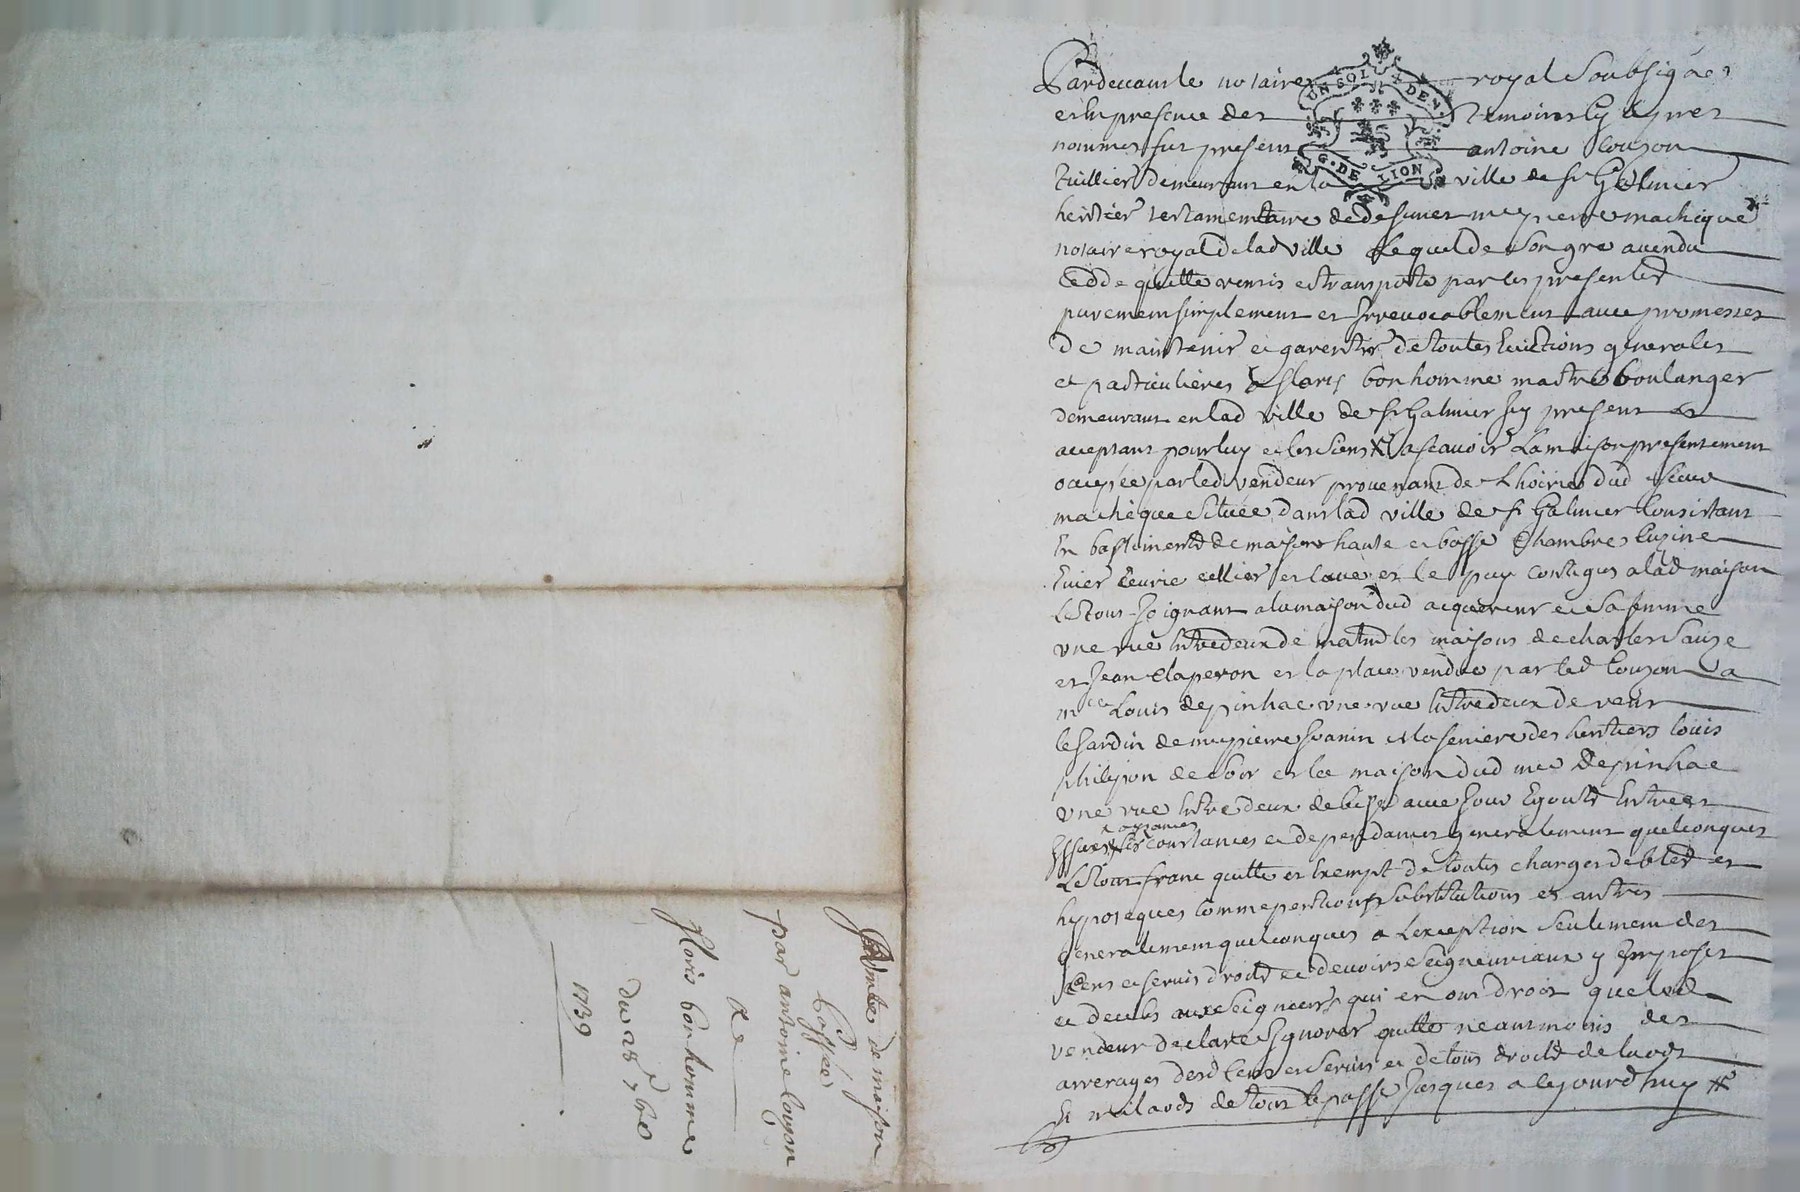 Pardevant le notaire royal soubsigné
et en presence des temoins cy apres
nommes fut present antoine Couzon
tuillier demeurant en la ville de st Galmier
heritier testamentaire de deffunct me pierre machique
notaire royal de lad ville Lequel de son gre a vendu
cedde quitte remis et transporte par les presentes
purement simplement et Irrevocablement avec promesses
de maintenir et garentir de toutes Evictions generales
et particulieres a floris bonhomme maitre boulanger
demeurant en lad ville de st Galmier Icy present et
acceptant pour luy et les siens ascavoir La maison presentement
occupée par led vendeur provenant de Lhoirie dud sieur
macheque située dans lad ville de st Galmier Consistant
En bastiments de maison haute et basse Chambres Cuzine
Evier Ecurie cellier et cave et le puy contigus a lad maison
Le tout Joignant a la maison dud acquereur et sa femme
vne rue Entredeux de matin les maisons de charles Sauze
et Jean Claperon et la place vendue par led Couzon a
me Louis depinhac vne rue Entredeux de vent
le Jardin de me pierre Joanin et la feniere des heritiers louis
philipon de soir et la maison dud me depinhac
vne rue Entredeux de bize avec Jour Egouts Entrees
Essues circonstances et dependances generalement quelconques
Le tout franc quitte et Exempt de toutes charges debtes et
hypoteques substitutions et autres
generalement quelconques a Lexception seulement des
Cens et servis droits et devoirs seigneuriaux y Imposes
et deubs aux seigneurs qui en ont droit que led
vendeur declare Ignorer quitte neantmoins des
arrerages desd Cens et servis et de tous droits de laods
et milaods de tout le passe Jusques a cejourdhuy

Vente de maison
passée
par antoine Couzon
a
floris bonhomme
du 28e 7bre
1739

UN SOL DEN
G. DE LION